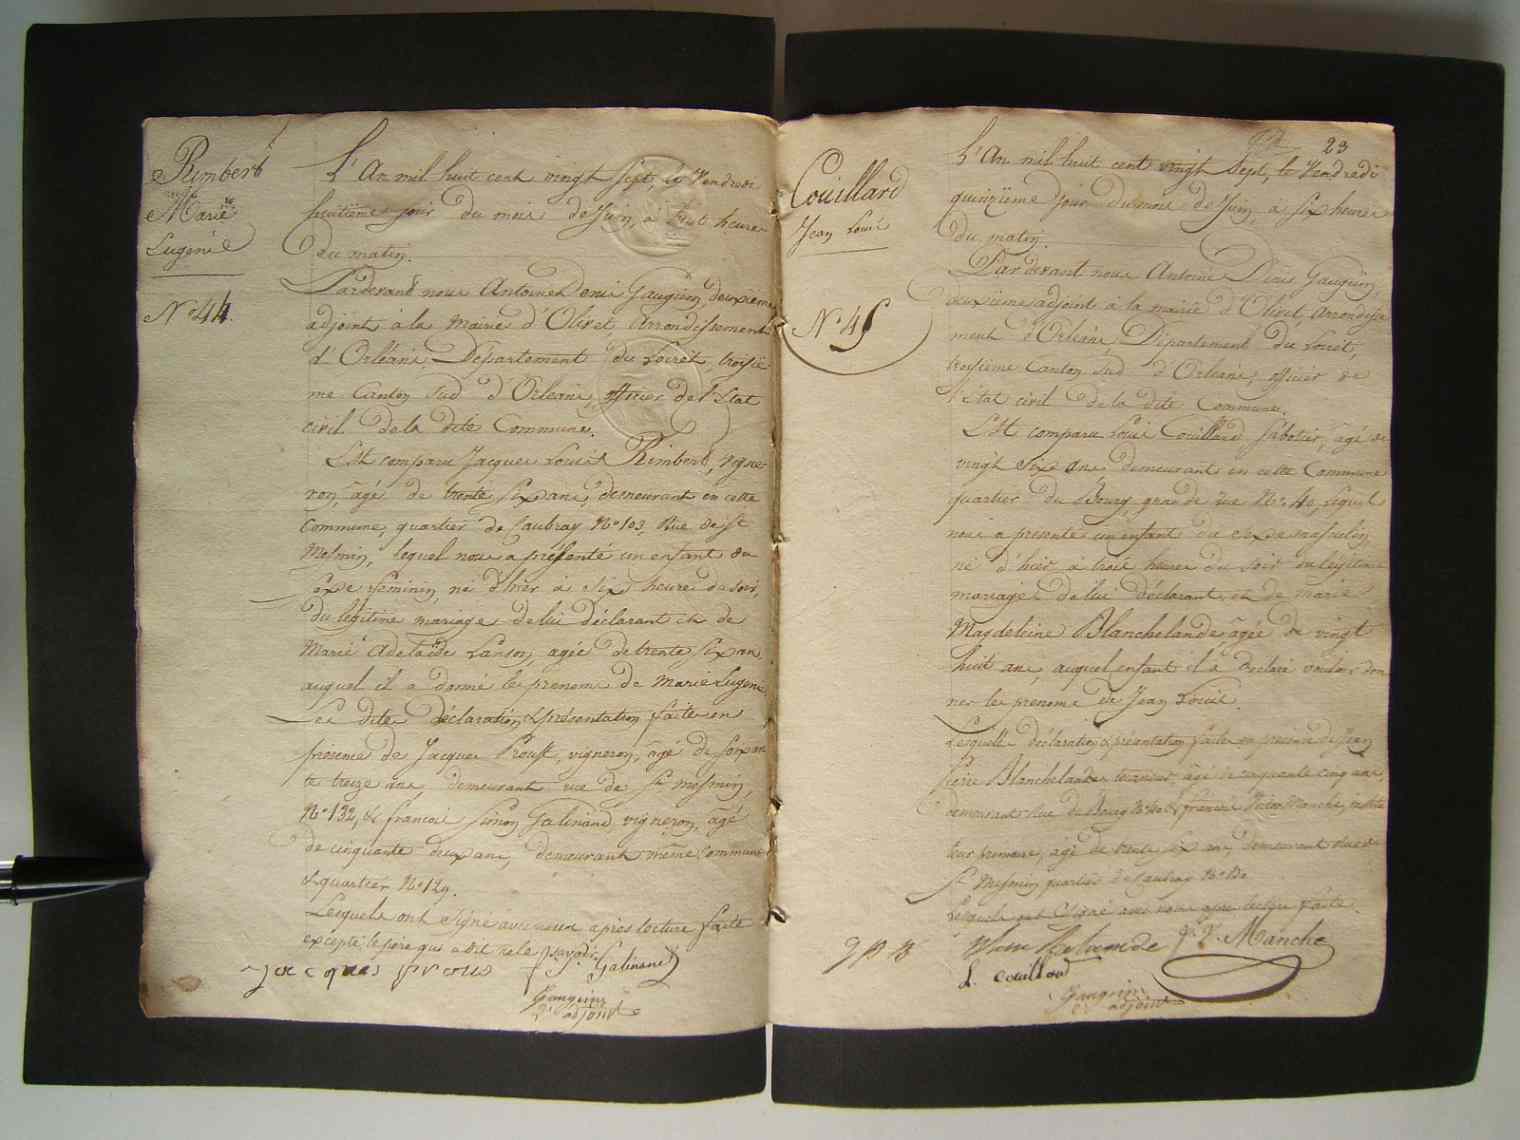 Rimbert
Marie
Eugénie
N° 44.
L'An mil huit cent vingt sept, le Vendredi
huitième jour du mois de Juin, à huit heure
du matin.
Pardevant nous Antoine Denis Gaugrin, deuxieme
adjoint à la Mairie d'Olivet Arrondissement
d'Orléans, Département du Loiret, troisiè
me Canton Sud d'Orléans, officier de l'Etat
civil de la dite Commune.
Est comparu Jacques Louis Rimbert, vigne
ron, âgé de trente six ans, demeurant en cette
Commune, quartier de Caubray N° 103, Rue de St
Mesmin, lequel nous a présenté un enfant du
sexe féminin, né d'hier à six heure du soir,
du légitime mariage de lui déclarant et de
Marie Adelaïde Lanson, agée de trente six ans,
auquel il a donné les prenoms de Marie Eugenie
Les dites déclaration & présentation faite en
présence de Jacques Proust, vigneron, âgé de soixan
te treize ans, demeurant rue de St mesmin,
N° 132, & francois Simon Galinand vigneron, âgé
de cinquante deux ans, demeurant même Commune
& quartier N° 129.
Lesquels ont signé avec nous après lecture faite
excepté le père qui a dit ne le savoir.
jacques prous
Galinand
Gaugrin
2e adjoint
23
Couillard
Jean Louis
N° 45
L'An mil huit cent vingt sept, le Vendredi
quinzième jour du mois de Juin à six heures
du matin.
Pardevant nous Antoine Denis Gaugrin,
deuxième adjoint à la mairie d'Olivet Arrondisse
ment d'Orléans, Département du Loiret,
troisième Canton Sud d'Orléans, officier de
l'état civil de la dite Commune.
Est comparu Louis Couillard Sabotier, âgé de
vingt six ans demeurant en cette Commune
quartier du Bourg, grande rue N° 40, lequel
nous a présenté un enfant du sexe masculin,
né d'hier à trois heures du soir du légitime
mariage de lui déclarant et de marie
Magdeleine Blanchelande âgée de vingt
huit ans, auquel enfant il a déclaré vouloir don
ner les prenoms de Jean Louis.
Lesquelles déclaration & présentation faites en présence de Jean
Pierre Blanchelande âgé de cinquante cinq ans,
demeurant Rue du Bourg N° 40 & françois Manche, institu
teur primaire, âgé de trente six ans, demeurant rue de
St Mesmin, quartier de Caubray N° 130
Lesquels ont signé avec nous après lecture faite.
Blanchelande
f. V. Manche
L. couillard
Gaugrin
2e adjoint